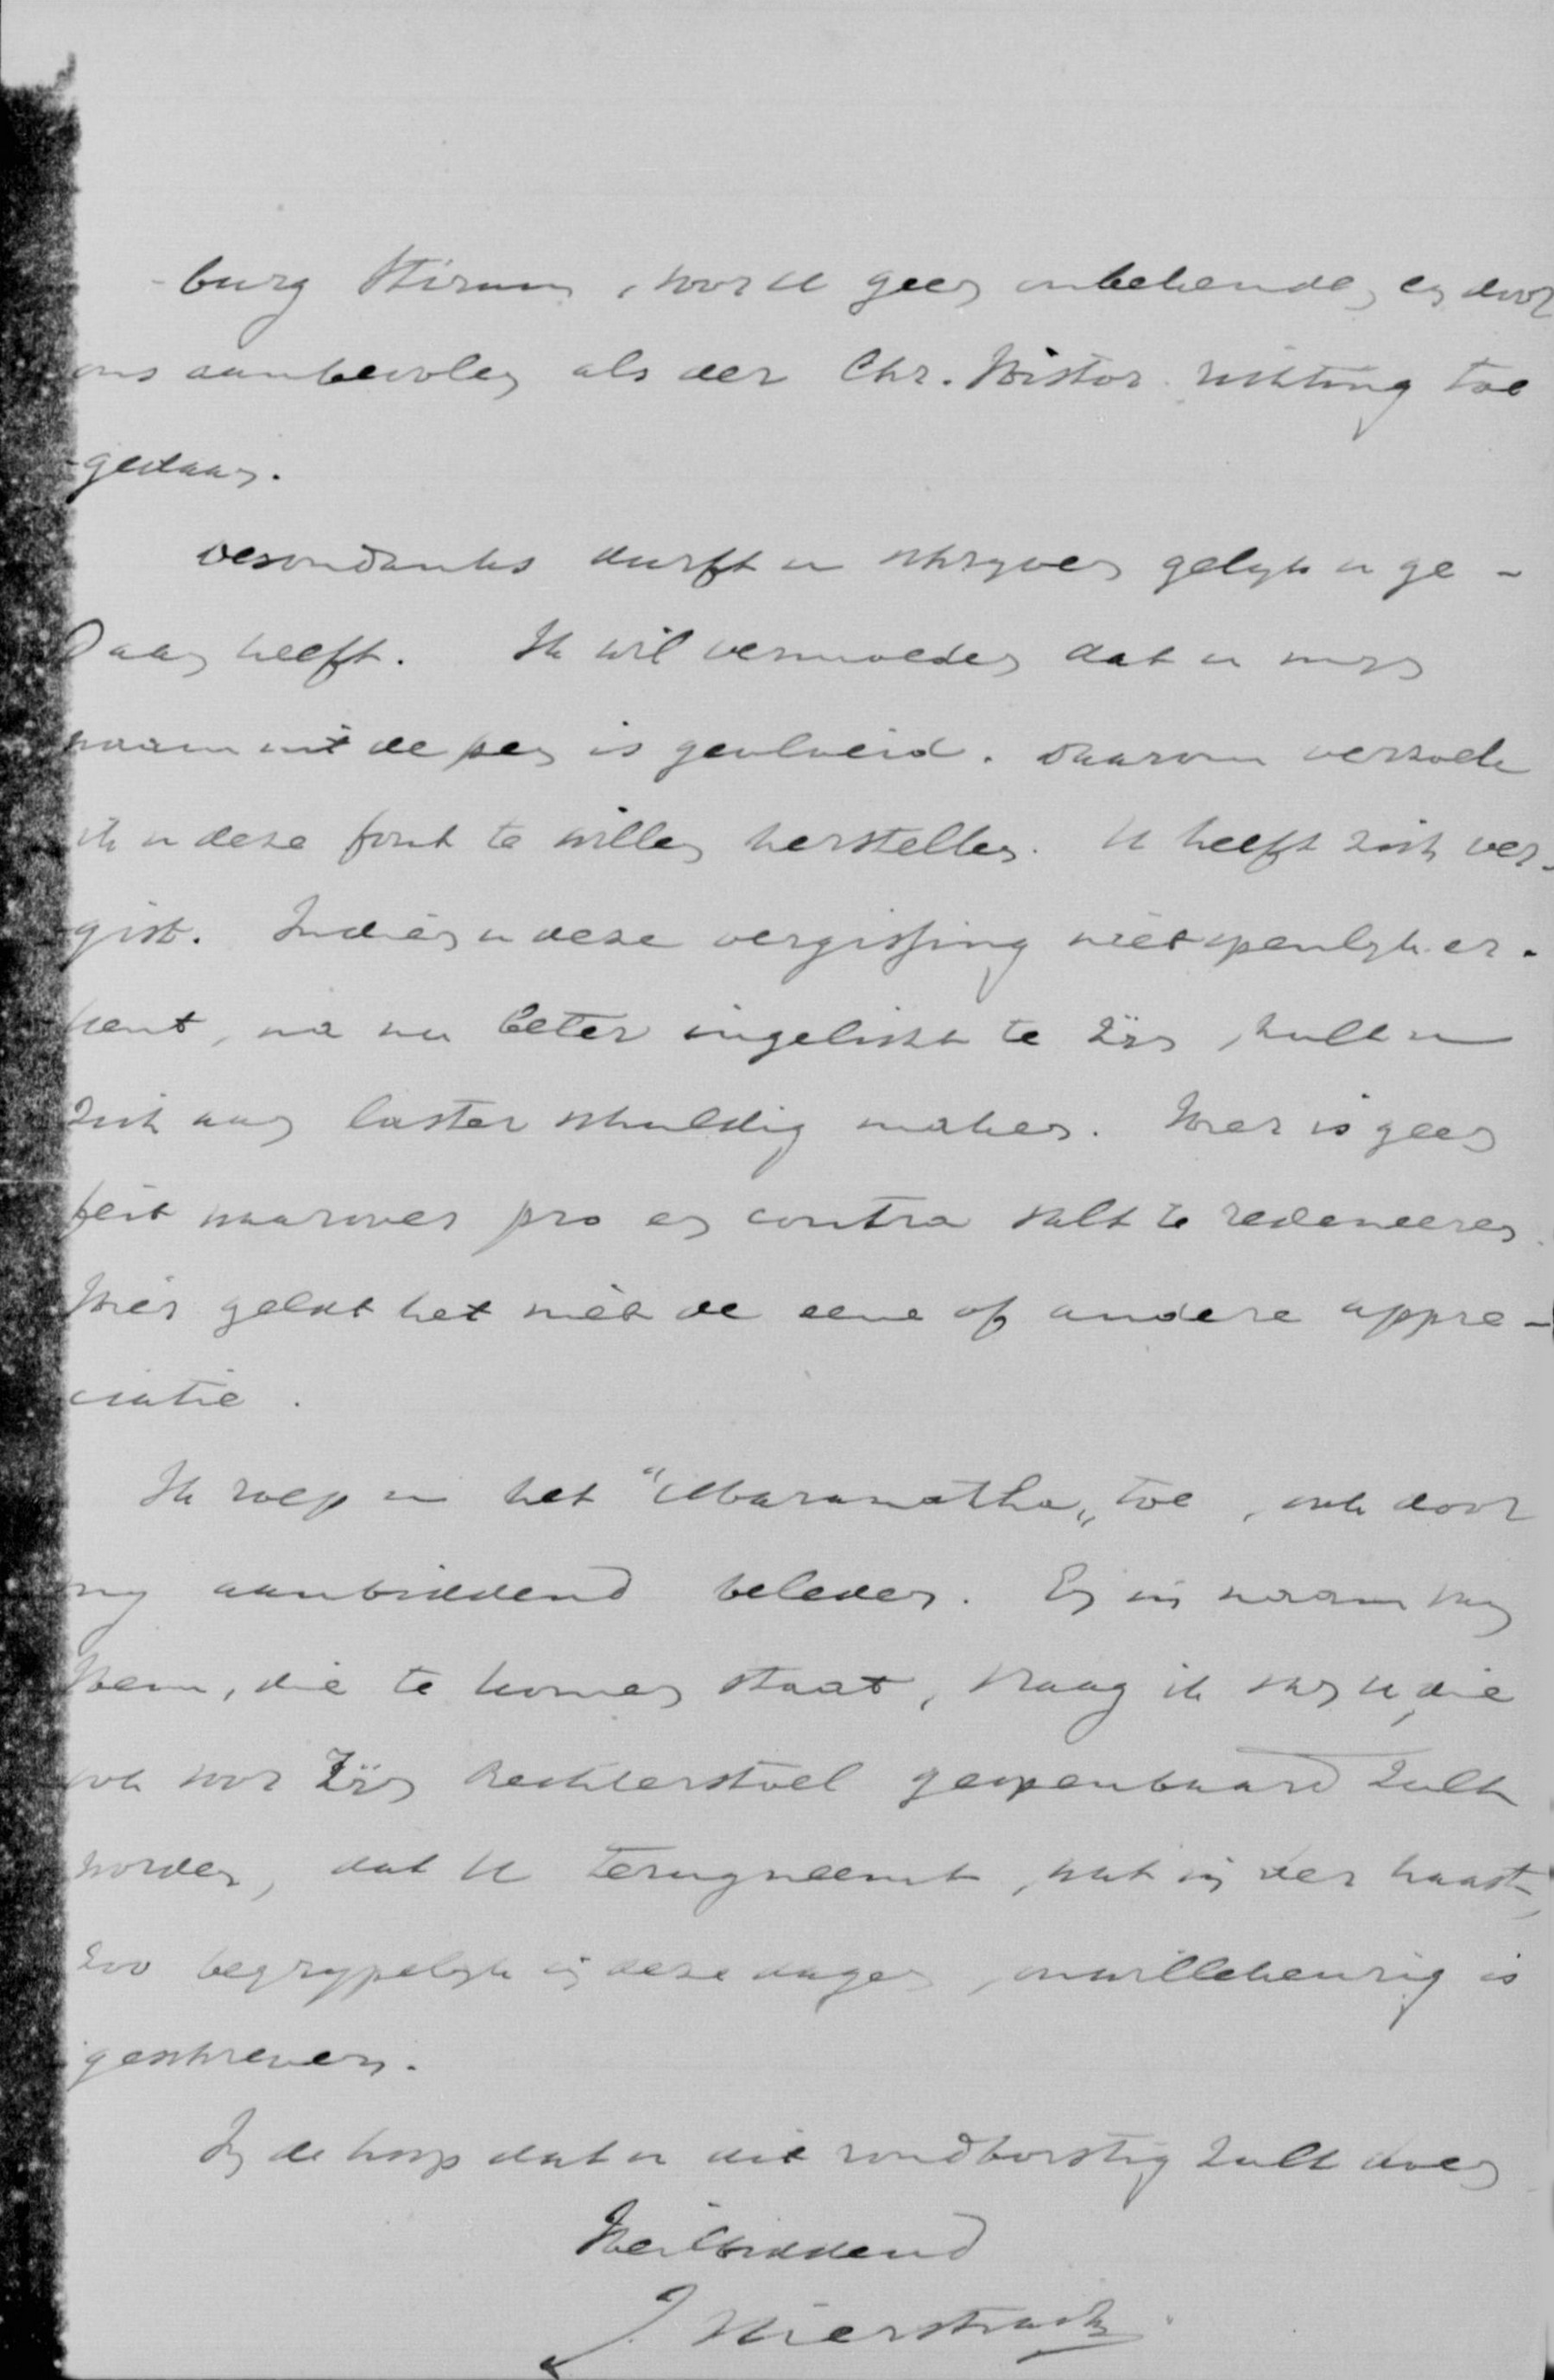 -burg Stirum, voor U geen onbekende, en door
ons aanbevolen als der Chr. Histor. richting toe
-gedaan.
Desondanks durft u schryven gelyk u ge-
Daan heeft. Ik wil vermoeden dat u myn
naam uit de pen is gevloeid. Daarom verzoek
ik u deze fout te willen herstellen. U heeft zich ver-
gist. Indien u deze vergissing niet openlyk er-
kent, na nu beter ingelicht te zijn, zult u
zich aan laster schuldig maken. Hier is geen
feit waarover pro en contra valt te redeneeren.
Hier geldt het niet de eene of andere appre-
ciatie.
Ik roep u het "Maranatha„ toe, ook door
my aanbiddend beleden. En in naam van
Hem, die te komen staat, vraag ik van U, die
ook voor Zijn Rechterstoel geopenbaard zult
worden, dat U terugneemt, wat in der haast,
zoo begrypelyk in deze dagen, onwillekeurig is
geschreven.
In de hoop dat u dit rondborstig zult doen
Heilbiddend
J. Nierstrasz